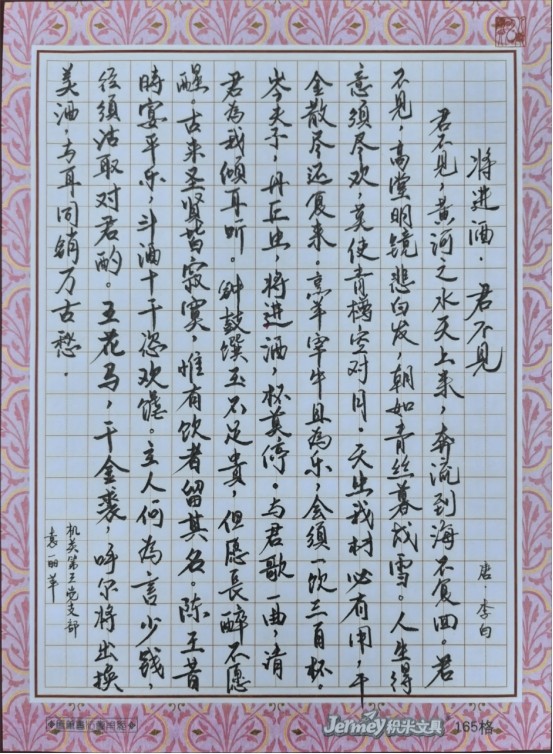 将进酒·君不见
唐·李白
君不见,黄河之水天上来,奔流到海不复回。君
不见,高堂明镜悲白发,朝如青丝暮成雪。人生得
意须尽欢,莫使青樽空对月。天生我材必有用,千
金散尽还复来。烹羊宰牛且为乐,会须一饮三百杯。
岑夫子,丹丘生,将进酒,杯莫停。与君歌一曲,请
君為我倾耳听。钟鼓馔玉不足贵,但愿長醉不愿
醒。古来圣贤皆寂寞,惟有饮者留其名。陈王昔
時宴平乐,斗酒十千恣欢谑。主人何為言少钱,
径须沽取对君酌。五花马,千金裘,呼尔将出换
美酒,与耳同销万古愁.
机关第五党支部
Jermey积米文具
165格